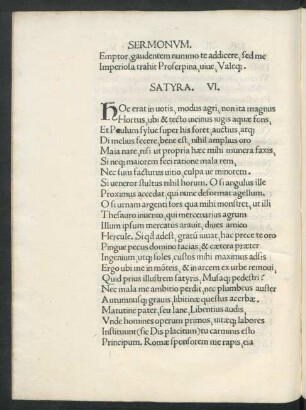 SERMONVM.
Emptor, gaudentem nummo te addicere, sed me
Imperiosa trahit Proserpina, uiue, Valeq;.
SATYRA. VI.
HOc erat in uotis, modus agri, non ita magnus
Hortus, ubi & tecto uicinus iugis aquæ fons,
Et Paulum syluæ super his foret, auctius, atq;
Di melius fecere, bene est, nihil amplius oro
Maia nate, nisi ut propria hæc mihi munera faxis,
Si neq; maiorem feci ratione mala rem,
Nec sum facturus uitio, culpa ue minorem.
Si ueneror stultus nihil horum. O si angulus ille
Proximus accedat, qui nunc deformat agellum.
O si urnam argenti fors qua mihi monstret, ut illi
Thesauro inuento, qui mercenarius agrum
Illum ipsum mercatus arauit, diues amico
Hercule. Si qd adest, gratū iuuat, hac prece te oro
Pingue pecus domino facias, & cætera præter
Ingenium, utq; soles, custos mihi maximus adsis
Ergo ubi me in mōteis, & in arcem ex urbe remoui,
Quid prius illustrem satyris, Musaq; pedestri?
Nec mala me ambitio perdit, nec plumbeus auster
Autumnusq; grauis, libitinæ quæstus acerbæ.
Matutine pater, seu Iane, Libentius audis,
Vnde homines operum primos, uitæq; labores
Instituunt (sic Dis placitum) tu carminis esto
Principum. Romæ sponsorem me rapis, eia